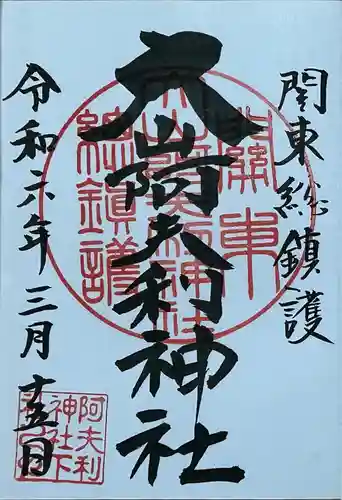 関東総鎮護
大山阿夫利神社
令和六年三月十五日
関東
大山阿夫利神社
総鎮護
阿夫利
神社下